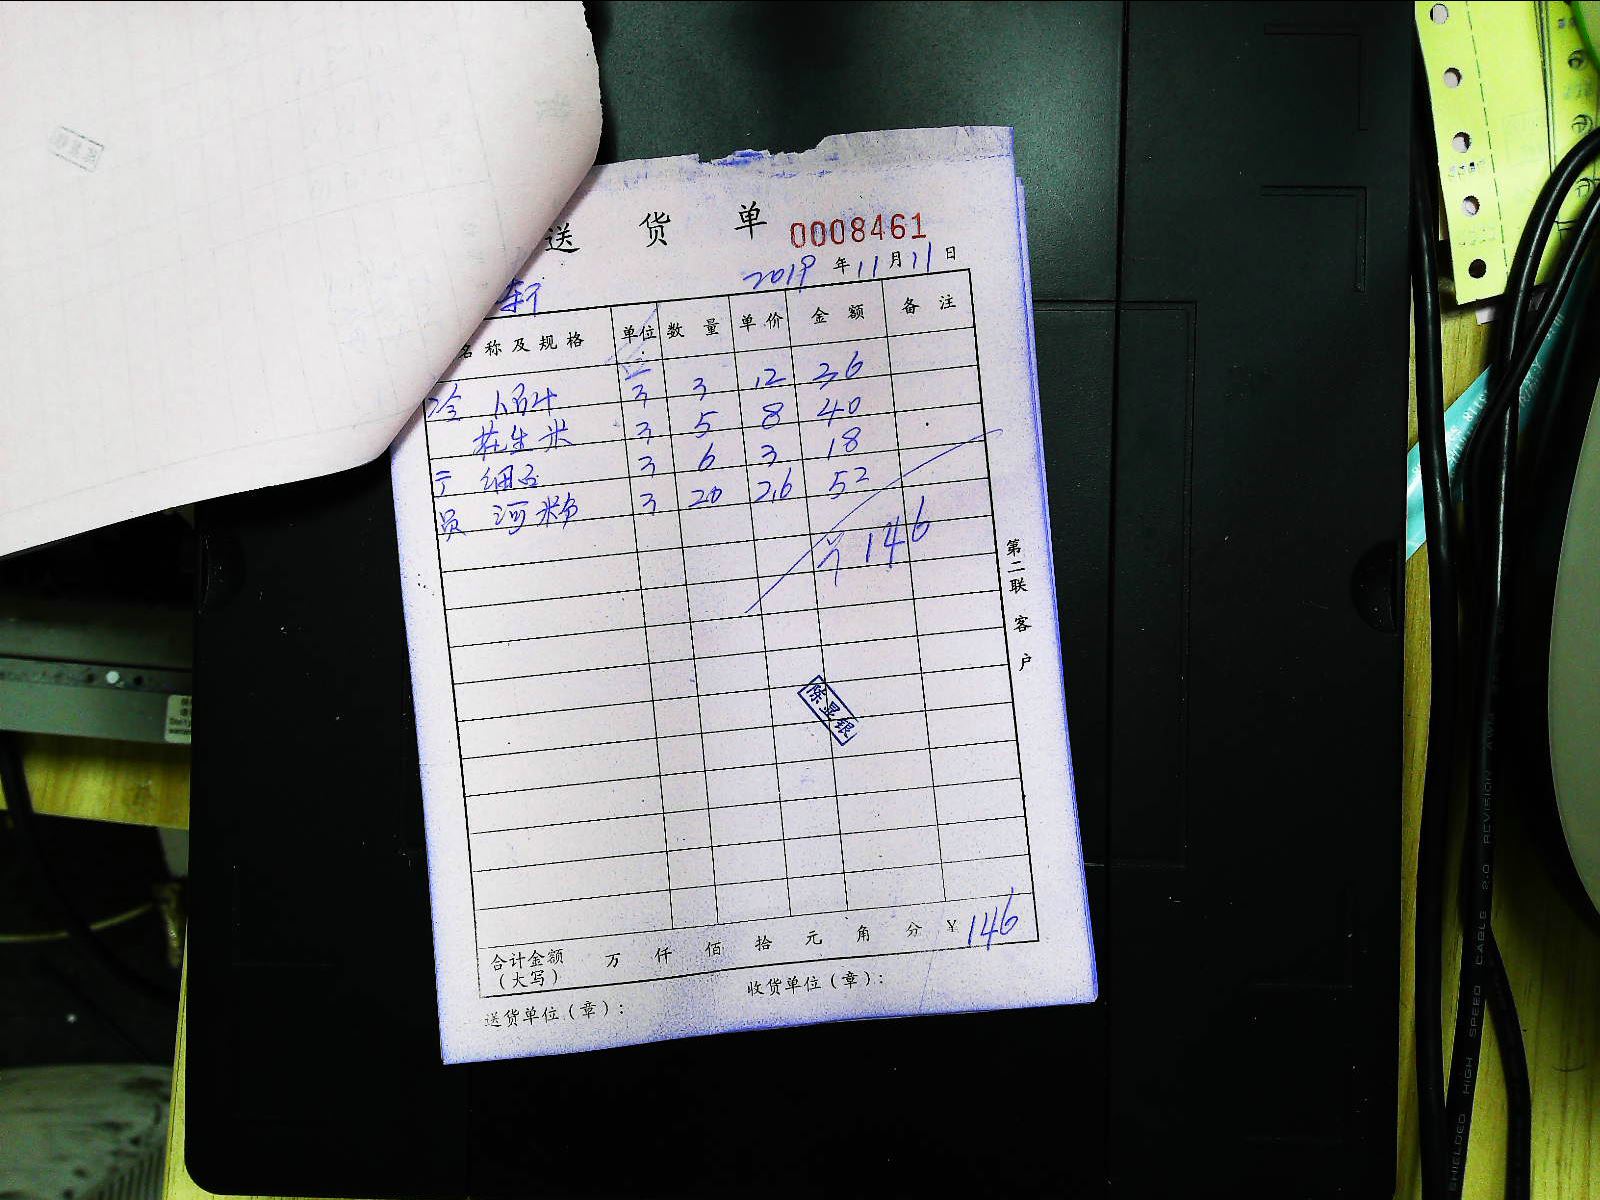 送 货 单 0008461
2019 年 11 月 11 日
轩
名称及规格 单位 数量 单价 金额 备注
冷 3 3 12 36
花生米 3 5 8 40
细 3 6 3 18
员 河粉 3 20 2.6 52
¥146
陈显银
第二联 客户
合计金额(大写) 万 仟 佰 拾 元 角 分 ¥ 146
送货单位(章): 收货单位(章):
SHIELDED HIGH SPEED CABLE 2.0 REVISION AWM